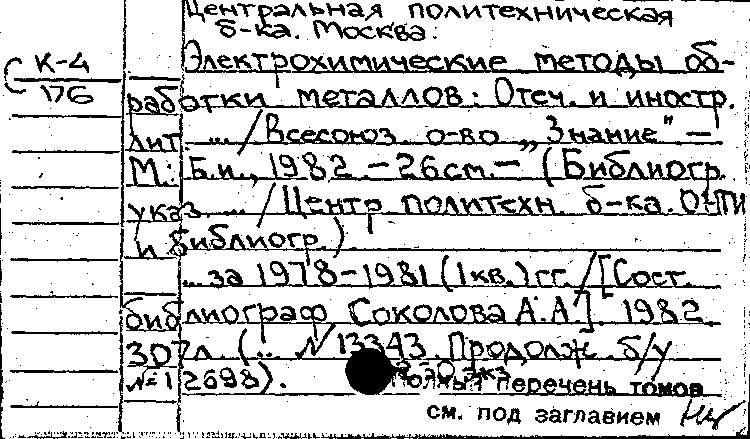 Центральная политехническая
б-ка. Москва.
К-4
176
Электрохимические методы об-
работки металлов: Отеч. и иностр.
лит. ... / Всесоюз. о-во „Знание" –
М.: Б.и., 1982. – 26 см. – (Библиогр.
указ. ... / Центр. политехн. б-ка. ОНТИ
и библиогр.).
... за 1978–1981 (1 кв.) гг. / [Сост.
библиограф Соколова А.А.]. 1982.
307 л. (... № 13343 Продолж. б/у
№ 12698). экз.
Полный перечень томов
см. под заглавием